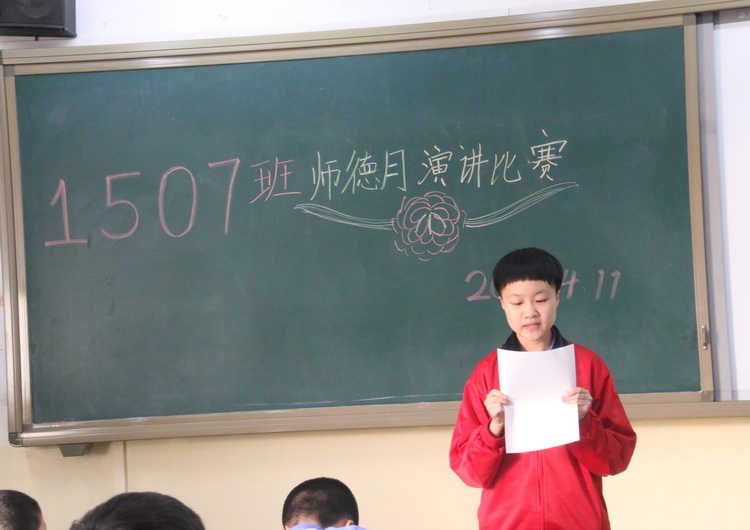 1507班 师德月演讲比赛
2 4.11